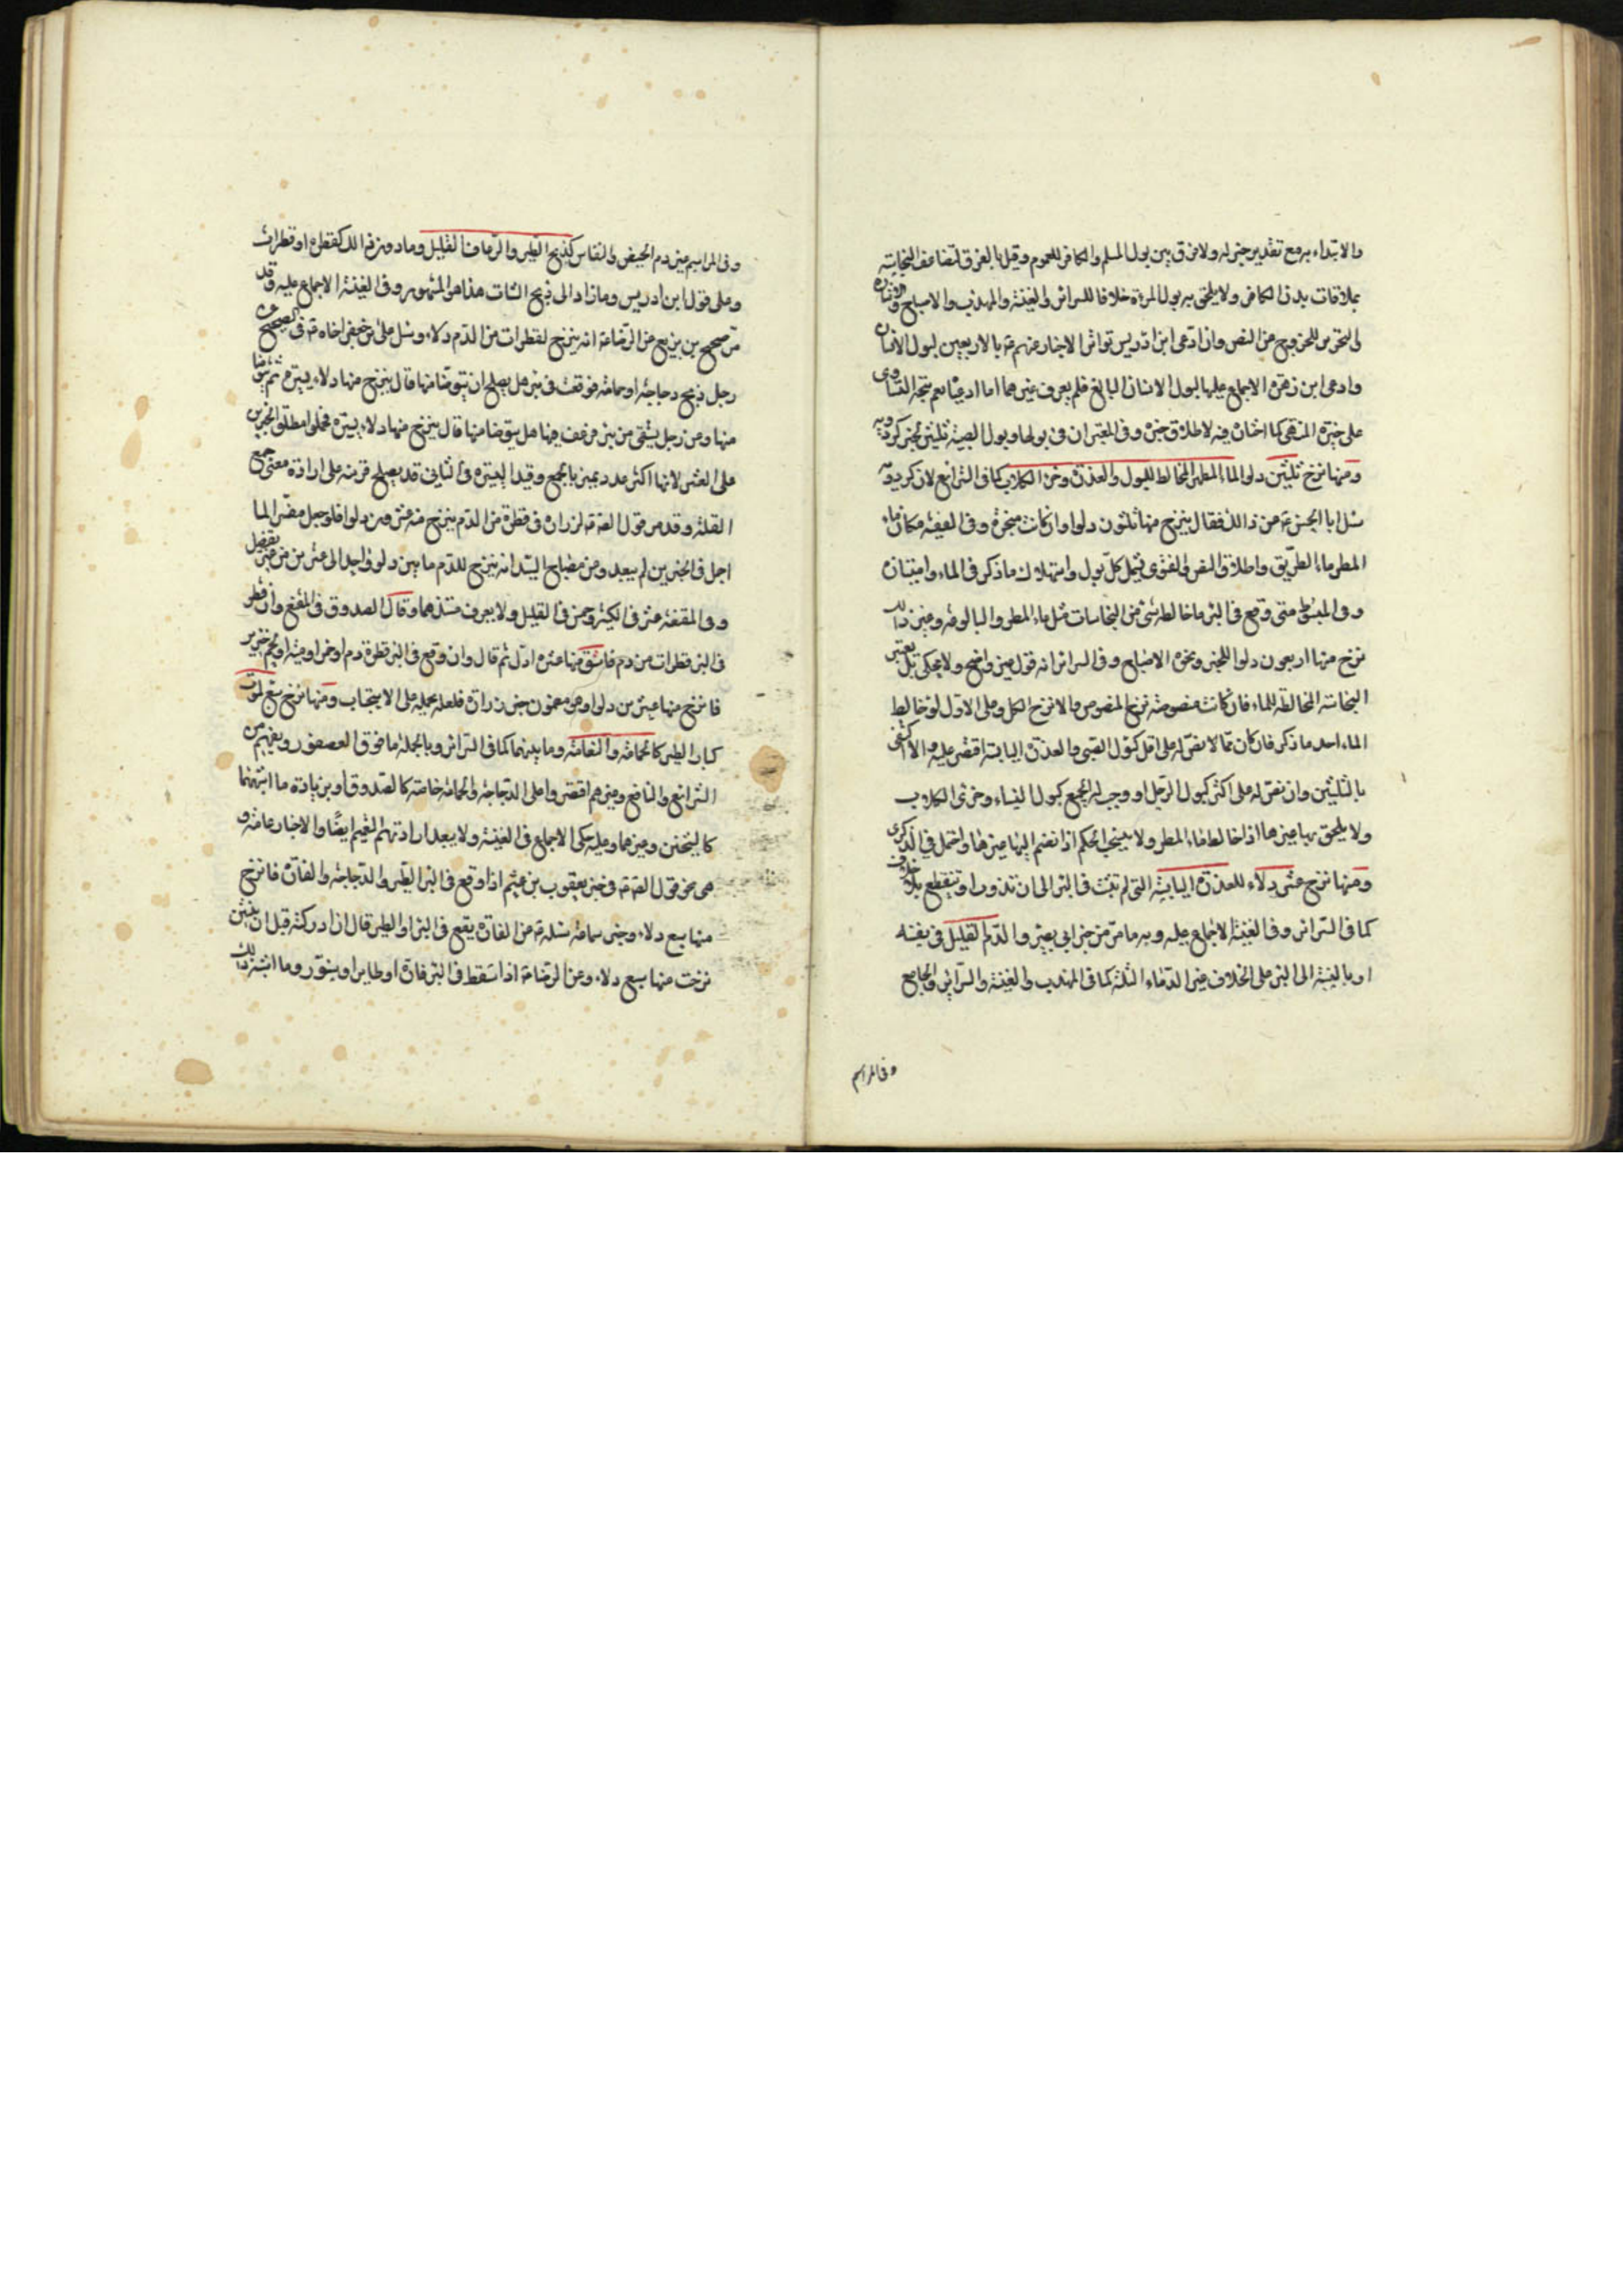 والابتداء به مع تقدير جبر له ولا فرق بين بول المسلم والكافر للعموم وقيل بالفرق لتضاعف النجاسة
بملاقات بدن الكافر ولا يلحق به بول المرءة خلافا للسرائر والغنية والمهذب والاصباح وفاقا
للتحرير للخروج عن النص وان ادعى ابن ادريس تواتر الاخبار عنهم ع بالاربعين لبول الانسان
وادعى ابن زهرة الاجماع عليها لبول الانسان البالغ فلم يعرف غيرهما اما ادعياه نعم يتجه التساوى
على خيرة المنتهى كما اختاره فيه لاطلاق خبره وفى المعتبر ان فى بولها وبول الصبية ثلثين لخبر كردويه
ومنها نزح ثلثين دلوا لماء المطر المخالط للبول والعذرة وخرء الكلاب كما فى الشرائع لان كردويه
سئل ابا الحسن ع عن ذالك فقال ينزح منها ثلثون دلوا وان كانت مبخرة وفى الفقيه مكان ماء
المطر ماء الطريق واطلاق النص والفتوى يشمل كل بول واستهلاك ما ذكر فى الماء وامتيازه
وفى المبسوط متى وقع فى البئر ماء خالطه شئ من النجاسات مثل ماء المطر والبالوعة وغير ذلك
نزح منها اربعون دلوا للخبر ونحوه الاصباح وفى السرائر انه قول غير واضح ولا محكى بل يعتبر
النجاسة المخالطة للماء فان كانت منصوصة نزح المنصوص والا نزح الكل وعلى الاول لو خالط
الماء احد ما ذكر فان كان مما لا نص له على اقل كبول الصبى والعذرة اليابسة اقتصر عليه والا اكتفى
بالثلثين وان نص له على اكثر كبول الرجل او وجب له الجميع كبول النساء وخرئ الكلاب
ولا يلحق بها غيرها اذا خالط ماء المطر ولا ينسحب الحكم اذا انضم اليها غيرها واحتمل فى الذكرى
ومنها نزح عشر دلاء للعذرة اليابسة التى لم تلبث فى البئر الى ان تذوب او تتقطع بلا خلاف
كما فى السرائر وفى الغنية الاجماع عليه وبه ما مر من خبر ابى بصير والدم القليل فى نفسه
او بالنسبة الى البئر على الخلاف غير الدماء الثلثة كما فى المهذب والغنية والسرائر والجامع
وفى المراسم
وفى المراسم غير دم الحيض والنفاس كذبح الطير والرعاف القليل وما دون ذالك كقطرة او قطرات
وعلى قول ابن ادريس وما زاد الى ذبح الشاة هذا هو المشهور وفى الغنية الاجماع عليه وقد
مر صحيح بن بزيع عن الرضا ع انه ينزح لقطرات من الدم دلاء وسئل على بن جعفر اخاه ع فى الصحيح عن
رجل ذبح دجاجة او حمامة فوقعت فى بئر هل يصلح ان يتوضا منها قال ينزح منها دلاء يسيرة ثم يتوضا
منها وعن رجل يستقى من بئر فرعف فيها هل يتوضا منها قال ينزح منها دلاء يسيرة فحملوا مطلق الخبرين
على العشر لانها اكثر عدد يميز بالجمع وقيد اليسيرة فى الثانى قد يصلح قرينة على ارادة معنى جمع
القلة وقد مر قول الصادق ع لزرارة فى قطرة من الدم ينزح منه عشرون دلوا فلو جعل مفسرا لما
اجمل فى الخبرين لم يبعد وعن مصباح السيد انه ينزح للدم ما بين دلو واحد الى عشرين من غير تفصيل
وفى المقنعة عشر فى الكثير وخمس فى القليل ولا يعرف مستندهما وقال الصدوق فى المقنع وان قطر
فى البئر قطرات من دم فاستق منها عشرة ادل ثم قال وان وقع فى البئر قطرة دم او خمر او ميتة او لحم خنزير
فانزح منها عشرين دلوا وهو مضمون خبر زرارة فلعله يحمله على الاستحباب ومنها نزح سبع لموت
كبار الطير كالحمامة والنعامة وما بينهما كما فى السرائر وبالجملة ما فوق العصفور وبعضهم من
الشرائع والنافع وغيرهم اقتصروا على الدجاجة والحمامة خاصة كالصدوق او بزيادة ما اشبههما
كالشيخين وغيرهما وعليه حكى الاجماع فى الغنية ولا يبعد ارادتهم التعميم ايضا والاخبار عامة و
هى نحو قول الصادق ع فى خبر يعقوب بن عيثم اذا وقع فى البئر الطير والدجاجة والفارة فانزح
منها سبع دلاء وخبر سماعة سئله ع عن الفارة يقع فى البئر او الطير قال ان ادركته قبل ان ينتن
نزحت منها سبع دلاء وعن الرضا ع اذا سقط فى البئر فارة او طاير او سنور وما اشبه ذالك